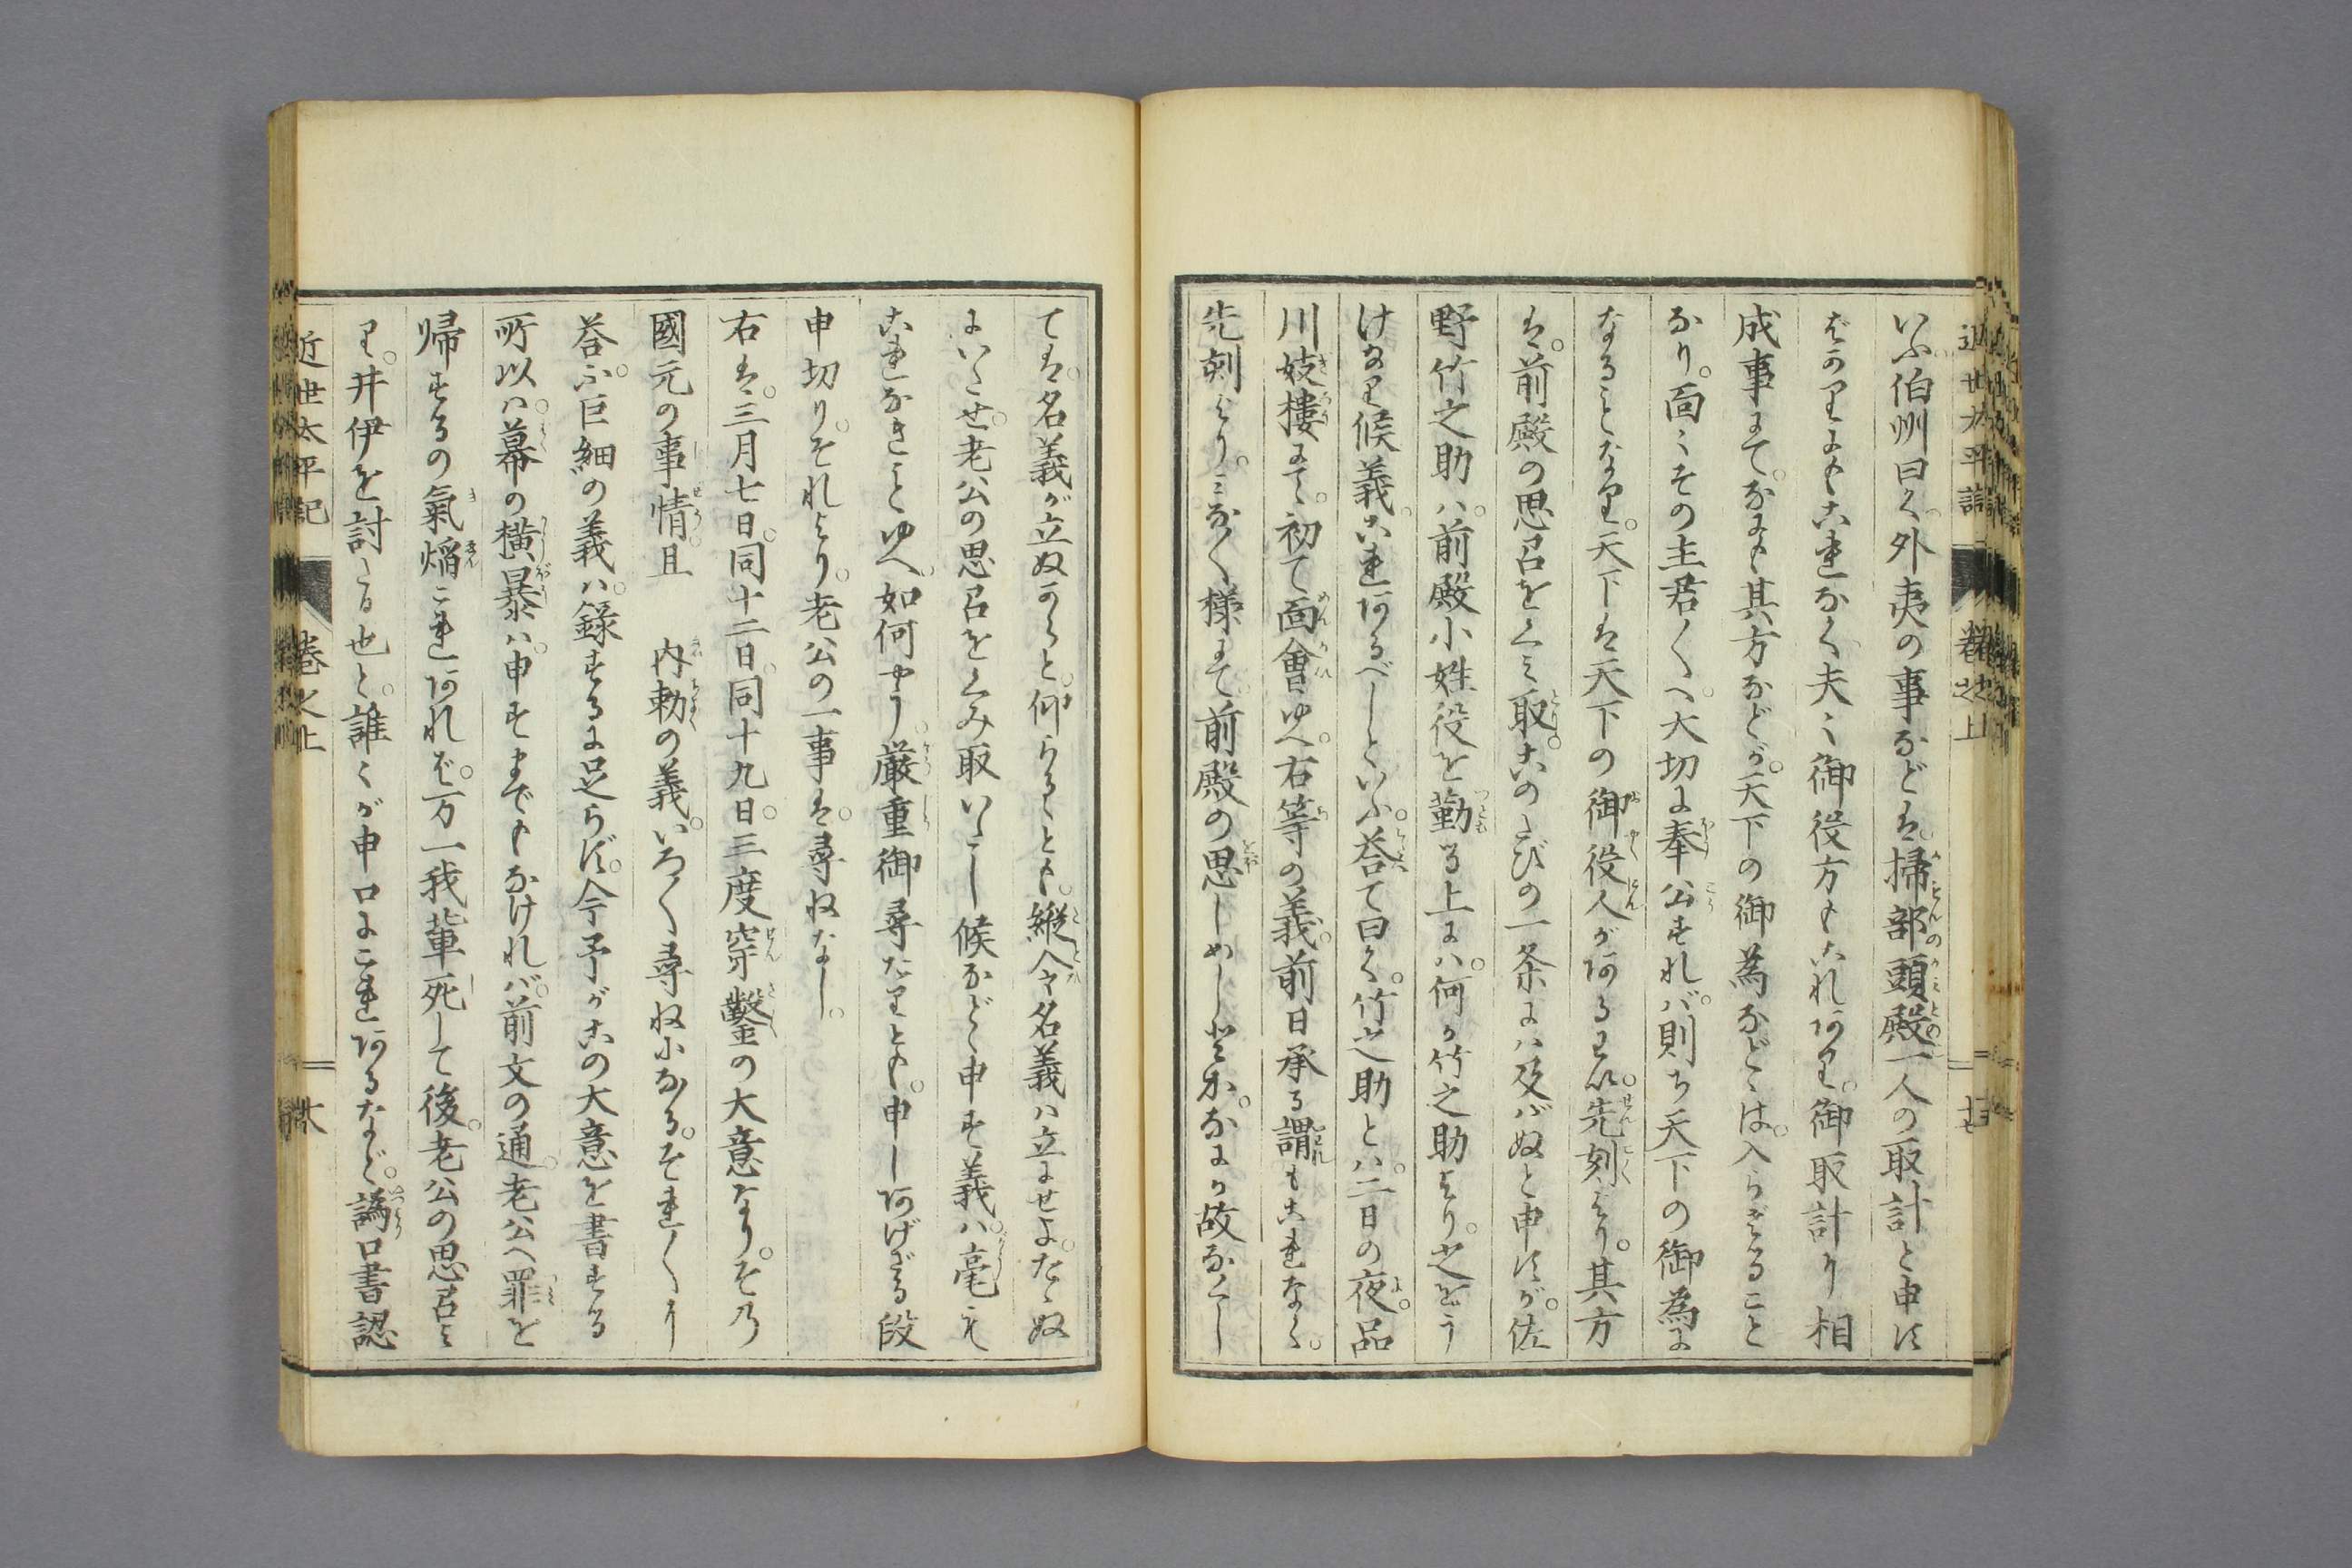 いふ伯州曰く外夷の事などは掃部頭殿一人の取計と申す
ばかりにもこれなく夫々御役方もこれあり御取計り相
成事にてなにも其方などが天下の御為などゝは入らざること
なり面々その主君〳〵へ大切に奉公すれバ則ち天下の御為に
なることなり天下は天下の御役人がある
先刻より其方
は前殿の思召をくみ取このたびの一条にハ及バぬと申すが佐
野竹之助ハ前殿小姓役を勤る上にハ何か竹之助より之をう
けなり候義これあるべしといふ答て曰く竹之助とハ二日の夜品
川妓樓にて初て面會ゆへ右等の義前日承る謂もこれなく
先刻よりみなく様にて前殿の思しめし
なにか故なくし
ては名義が立ぬからと仰らるゝとも縦令名義ハ立にせよたゝぬ
にいたせ老公の思召をくみ取いたし候などゝ申す義ハ毫も
これなきことゆへ如何やう厳重御尋たりとも申しあげざる段
申切りそれより老公の一事は尋ねなし
右は三月七日同十二日同十九日三度穿鑿の大意なりその
國元の事情且　内勅の義いろ〳〵尋ねになるそれ〳〵
答ふ巨細の義ハ録するに足らず今予がこの大意を書する
所以ハ幕の横暴ハ申すまでもなけれバ前文の通老公へ罪を
帰するの氣焔これあれば万一我輩死して後老公の思召に
て井伊を討たる也と誰々が申口にこれあるなど譌口書認
近世太平記　巻之上　十六
近世太平記　巻之上